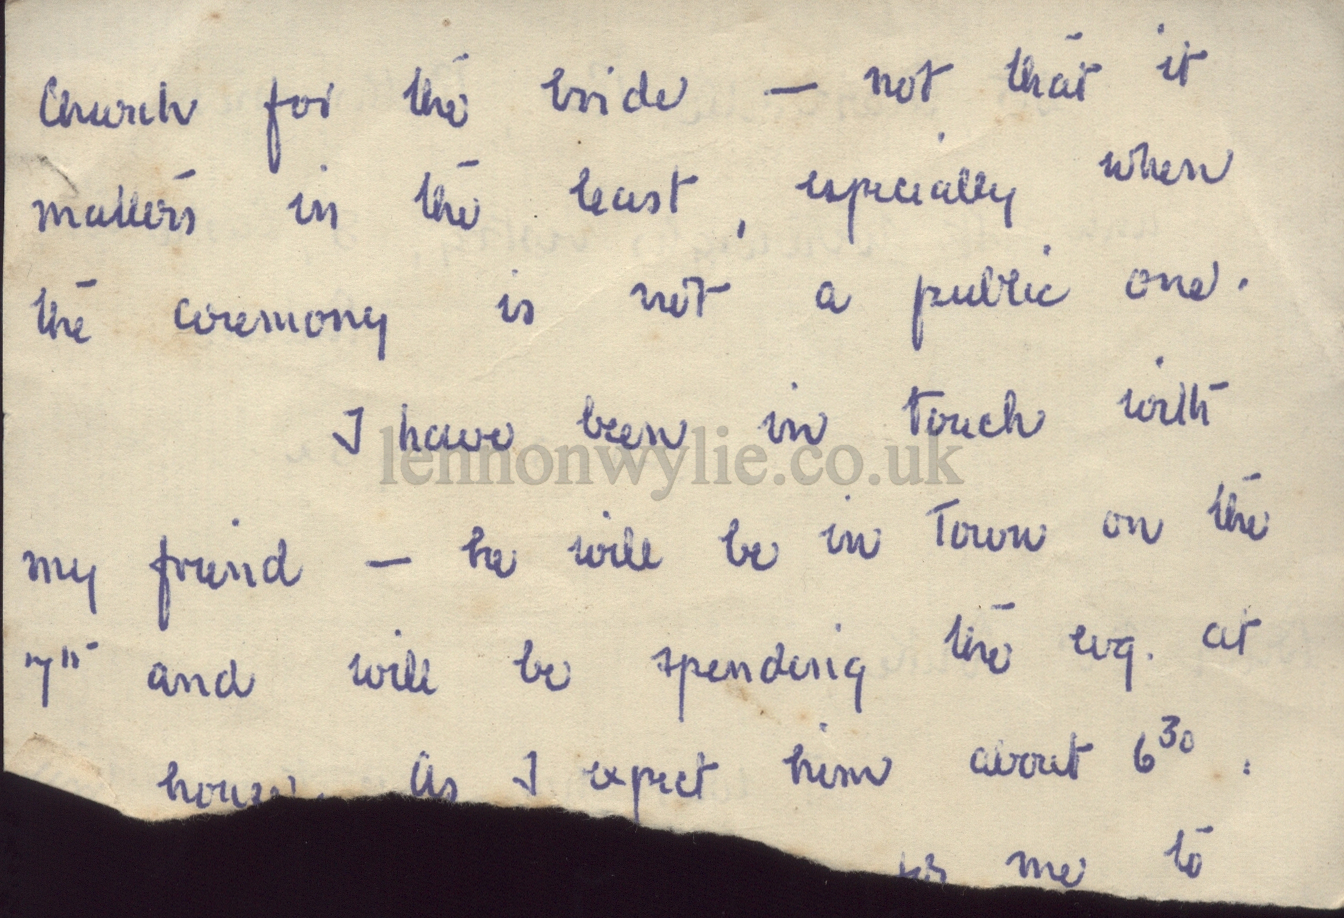 Church for the bride — not that it
matters in the least, especially when
the ceremony is not a public one.
I have been in touch with
lennonwylie.co.uk
my friend — he will be in Town on the
7th and will be spending the evg. at
house. As I expect him about 6 30.
me to